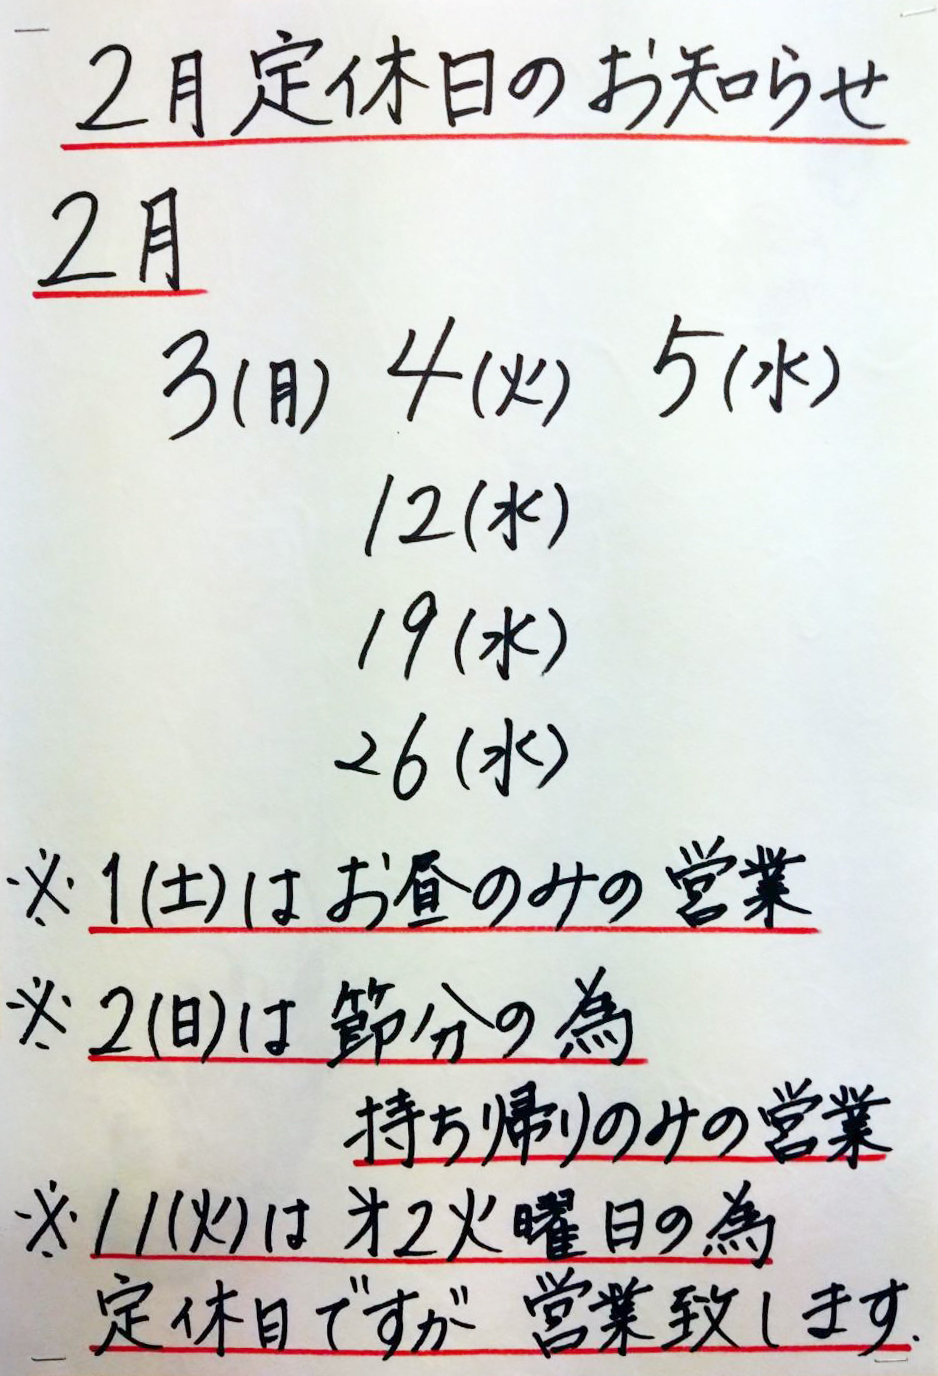 2月定休日のお知らせ
2月
3(月) 4(火) 5(水)
12(水)
19(水)
26(水)
※1(土)はお昼のみの営業
※2(日)は節分の為
持ち帰りのみの営業
※11(火)は才2火曜日の為
定休日ですが営業致します.